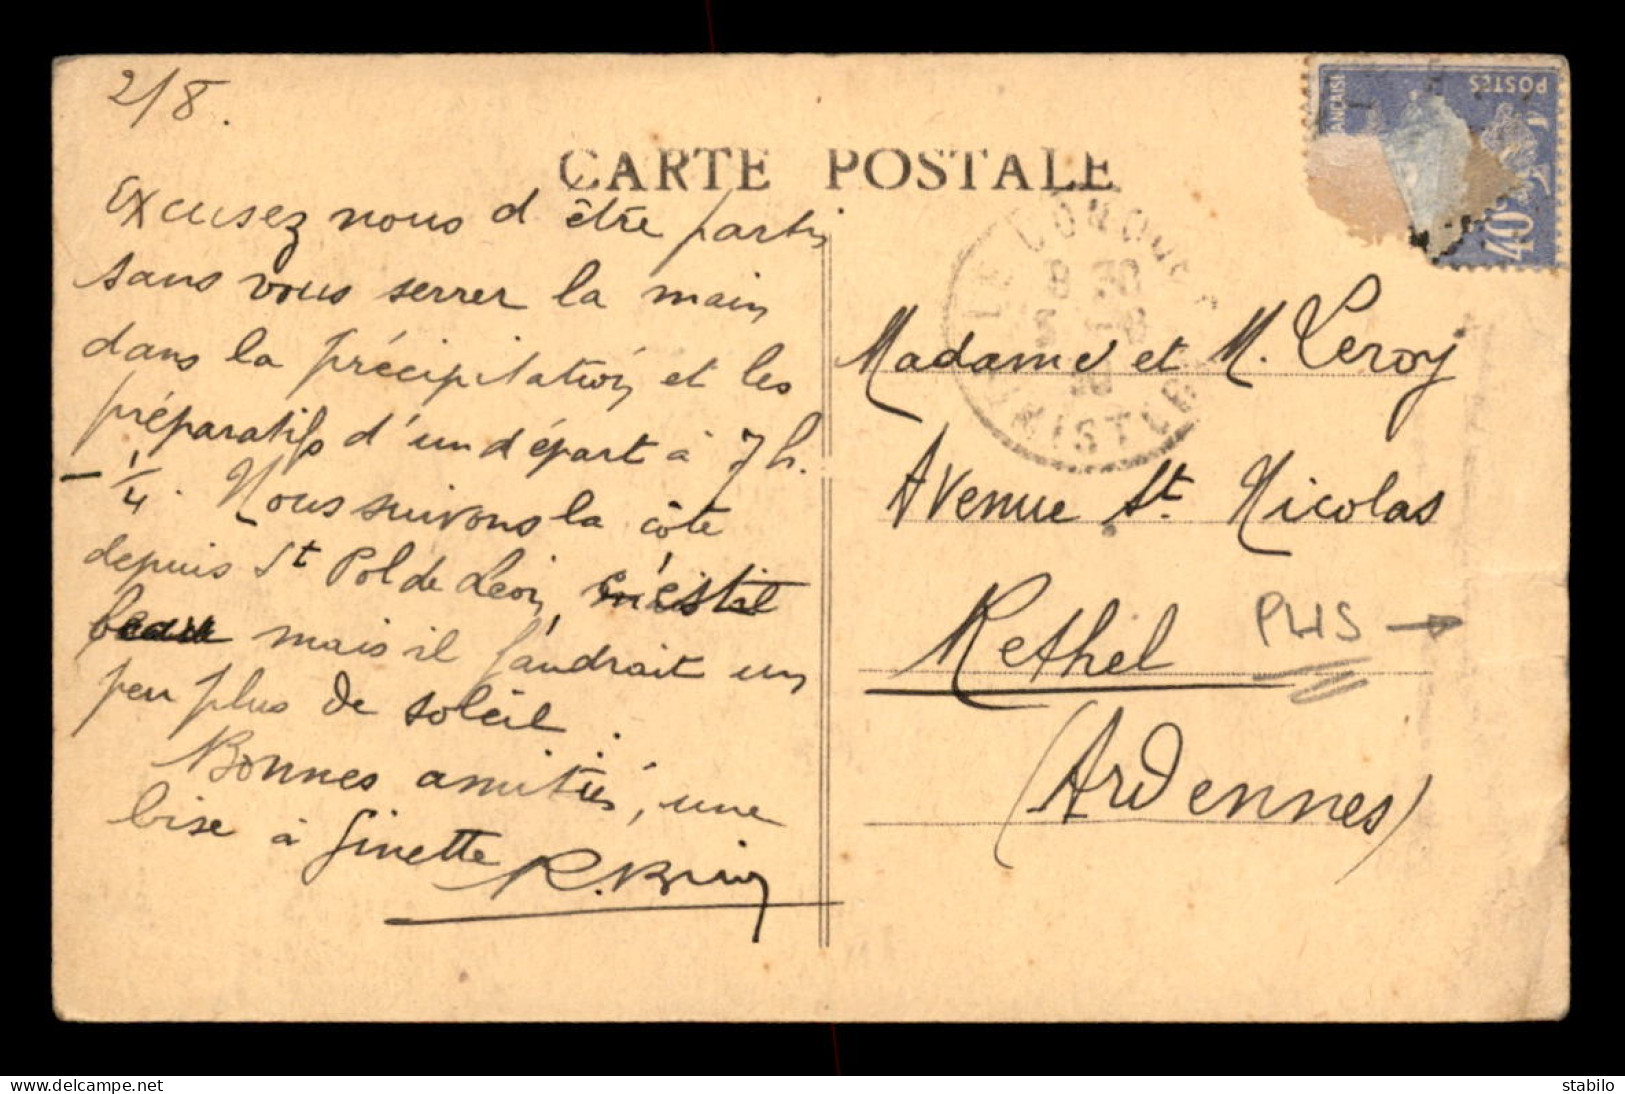 2/8.
CARTE POSTALE
Excusez nous d'être partis
sans vous serrer la main
dans la précipitation et les
préparatifs d'un départ à 7h.
- 1/4. Nous suivons la côte
depuis St Pol de Leon, c'est
mais il faudrait un
peu plus de soleil.
Bonnes amitiés, une
bise à Ginette
R.
POSTES
40
LE CONQUET
FINISTERE
Madame et M. Leroy
Avenue St. Nicolas
Rethel
PLIS →
(Ardennes)
stabilo